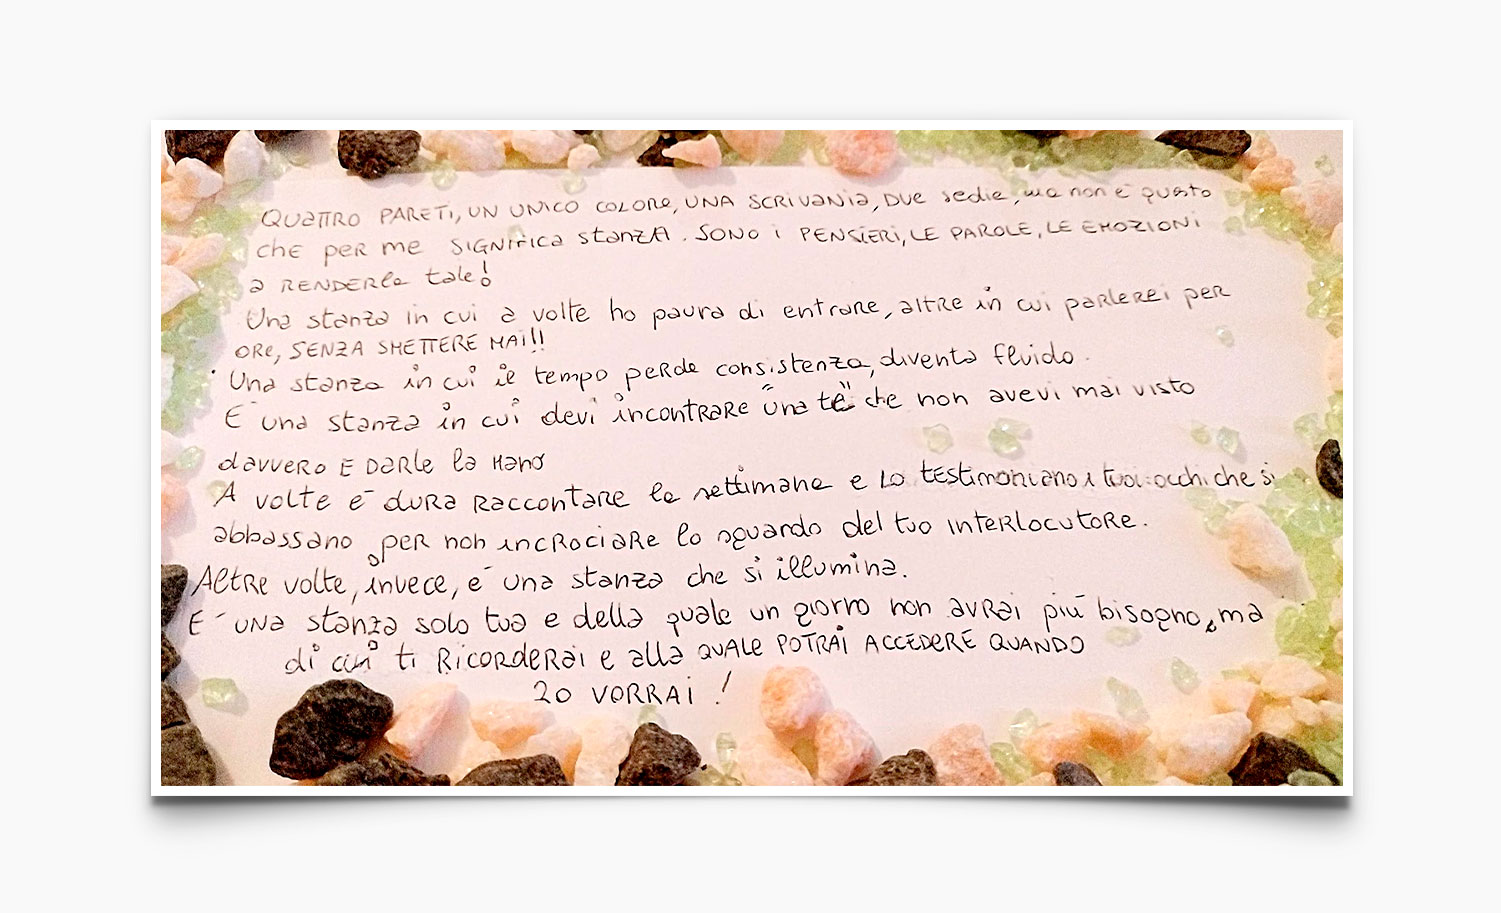 QUATTRO PARETI, UN UNICO COLORE, UNA SCRIVANIA, DUE sedie, ma non è questo
che per me SIGNIFICA stanza. SONO i PENSIERI, LE PAROLE, LE EMOZIONI
a RENDERla tale!
Una stanza in cui a volte ho paura di entrare, altre in cui parlerei per
ORE, SENZA SMETTERE MAI!!
Una stanza in cui il tempo perde consistenza, diventa fluido.
E' una stanza in cui devi incontrare "una te" che non avevi mai visto
davvero E DARLE la MANO
A volte è dura raccontare le settimane e lo testimoniano i tuoi occhi che si
abbassano per non incrociare lo sguardo del tuo interlocutore.
Altre volte, invece, e' una stanza che si illumina.
E' UNA stanza solo tua e della quale un giorno non avrai più bisogno, ma
di cui ti Ricorderai e alla QUALE POTRAI ACCEDERE QUANDO
LO VORRAI!